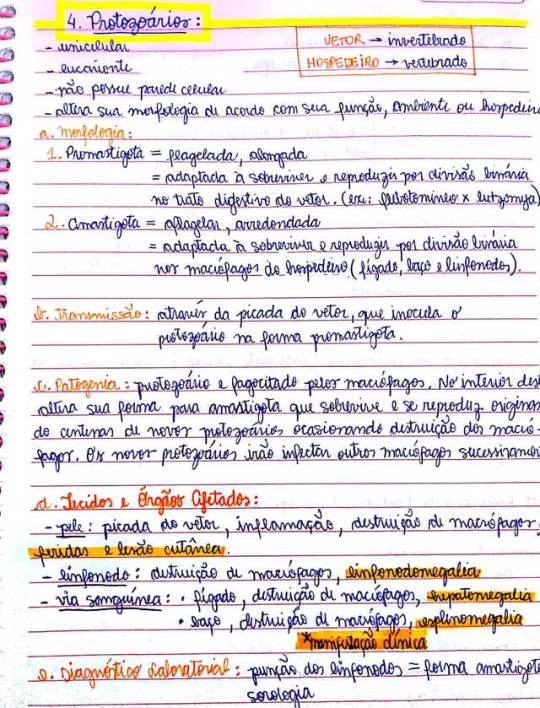 4. Protozoários:
- unicelular
VETOR → invertebrado
- eucarionte
HOSPEDEIRO → vertebrado
- não possui parede celular
- altera sua morfologia de acordo com sua função, ambiente ou hospedeiro
a. Morfologia:
1. Promastigota = flagelada, alongada
= adaptada à sobreviver e reproduzir por divisão binária
no trato digestivo do vetor. (ex: flebotomíneo x lutzomya)
2. Amastigota = aflagelar, arredondada
= adaptada à sobreviver e reproduzir por divisão binária
nos macrófagos do hospedeiro (fígado, baço e linfonodos).
b. Transmissão: através da picada do vetor, que inocula o
protozoário na forma promastigota.
c. Patogenia: protozoário é fagocitado pelos macrófagos. No interior des
altera sua forma para amastigota que sobrevive e se reproduz origina
do centenas de novos protozoários ocasionando destruição dos macró-
fagos. Os novos protozoários irão infectar outros macrófagos sucessivamen
d. Tecidos e Órgãos Afetados:
- pele: picada do vetor, inflamação, destruição de macrófagos,
feridas e lesão cutânea.
- linfonodo: destruição de macrófagos, linfonodomegalia
- via sanguínea: • fígado, destruição de macrófagos, hepatomegalia
• baço, destruição de macrófagos, esplinomegalia
*manifestação clínica
e. Diagnóstico Laboratorial: punção dos linfonodos = forma amastigota
sorologia